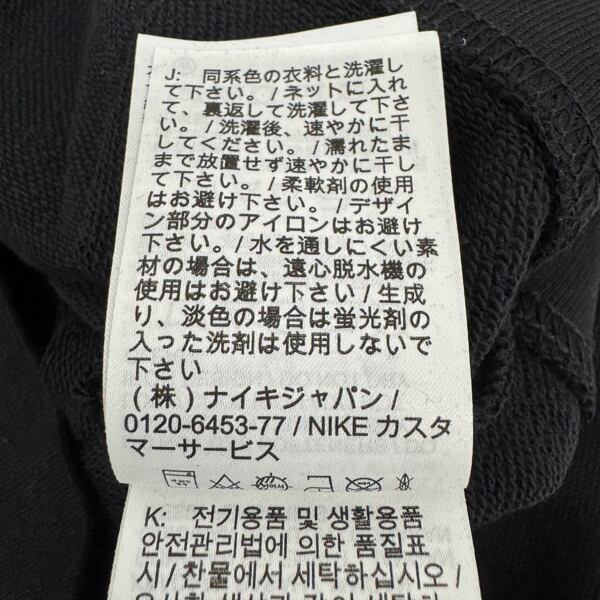 J: 同系色の衣料と洗濯し
て下さい。/ ネットに入れ
て、裏返して洗濯して下さ
い。/ 洗濯後、速やかに干
してください。/ 濡れたま
まで放置せず速やかに干し
て下さい。/ 柔軟剤の使用
はお避け下さい。/ デザイ
ン部分のアイロンはお避け
下さい。/ 水を通しにくい素
材の場合は、遠心脱水機の
使用はお避け下さい / 生成
り、淡色の場合は蛍光剤の
入った洗剤は使用しないで
下さい
(株) ナイキジャパン /
0120-6453-77 / NIKE カスタ
マーサービス
K: 전기용품 및 생활용품
안전관리법에 의한 품질표
시 / 찬물에서 세탁하십시오 /